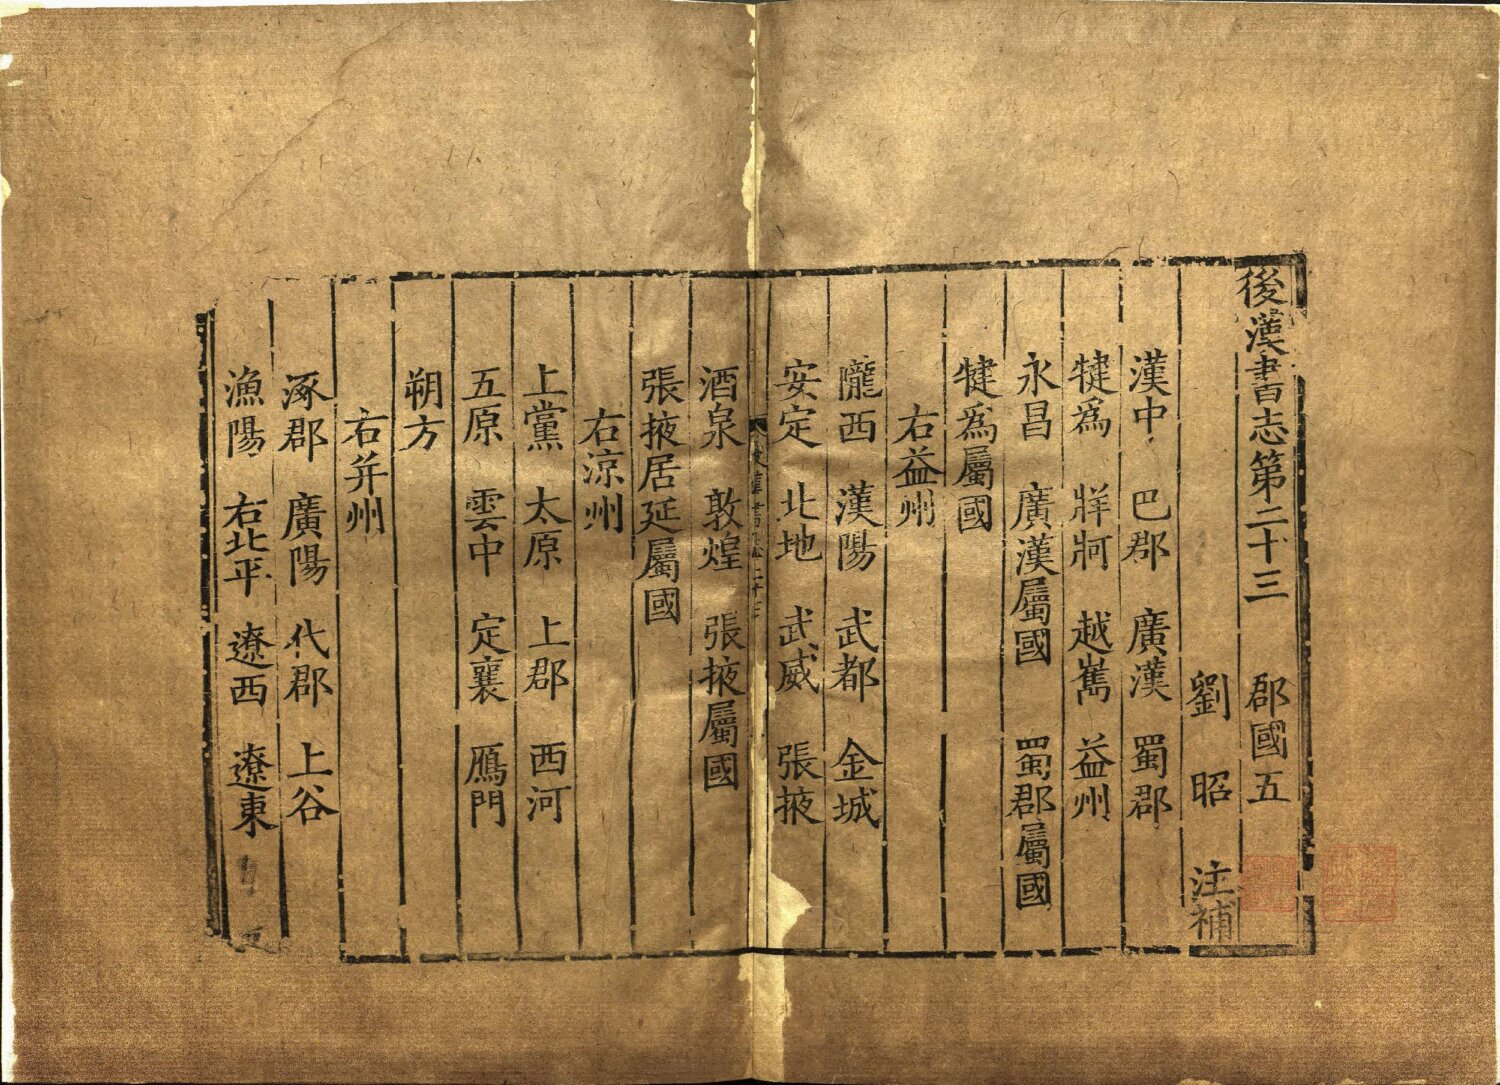 後漢書志第二十三 郡國五
劉 昭 注補
漢中 巴郡 廣漢 蜀郡
犍爲 牂牁 越嶲 益州
永昌 廣漢屬國 蜀郡屬國
犍爲屬國
右益州
隴西 漢陽 武都 金城
安定 北地 武威 張掖
酒泉 敦煌 張掖屬國
張掖居延屬國
右涼州
上黨 太原 上郡 西河
五原 雲中 定襄 鴈門
朔方
右并州
涿郡 廣陽 代郡 上谷
漁陽 右北平 遼西 遼東